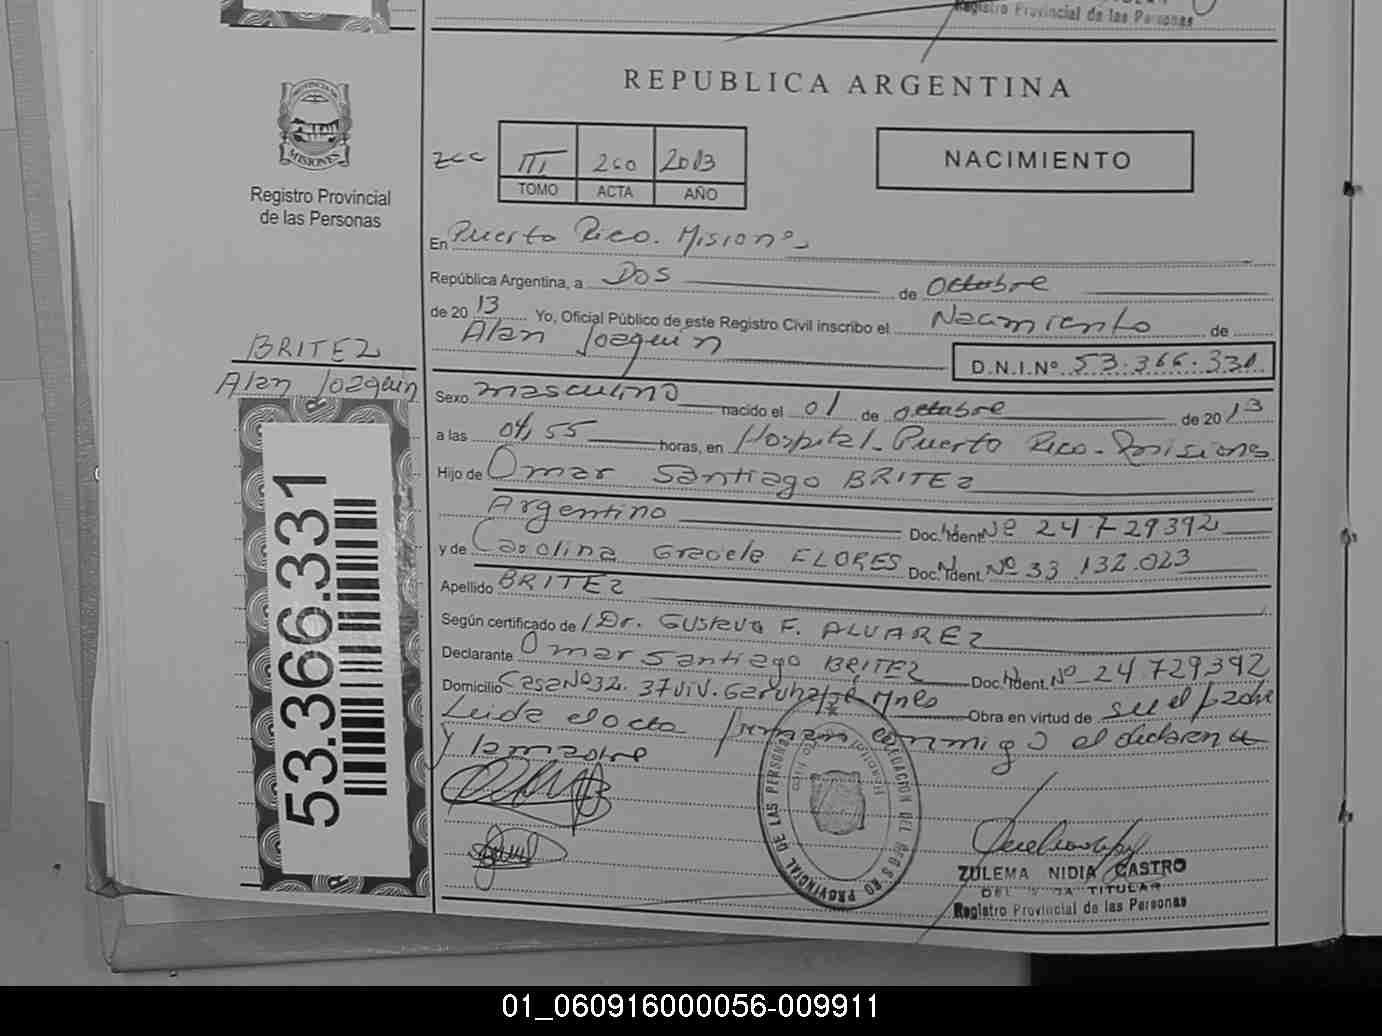 Registro Provincial de las Personas
REPUBLICA ARGENTINA
PROVINCIA DE
MISIONES
Registro Provincial
de las Personas
III 260 2013
TOMO ACTA AÑO
NACIMIENTO
En Puerto Rico. Misiones
República Argentina, a Dos de Octubre
de 2013 Yo, Oficial Público de este Registro Civil inscribo el Nacimiento de
Alan Joaquin
D.N.I.Nº 53.366.331
BRITEZ
Alan Joaquin
53.366.331
Sexo masculino nacido el 01 de octubre de 2013
a las 04,55 horas, en Hospital - Puerto Rico - Misiones
Hijo de Omar Santiago BRITEZ
Argentino Doc. Ident. Nº 24729392
y de Carolina Graciela FLORES Doc. Ident. Nº 33.132.023
Apellido BRITEZ
Según certificado de Dr. Gustavo F. ALVAREZ
Declarante Omar Santiago BRITEZ Doc. Ident. Nº 24729392
Domicilio Casa Nº32. 37 Viv. Garuhapé Mnes Obra en virtud de su el padre
Leida el acta firman conmigo el declarante
y la madre
ZULEMA NIDIA CASTRO
TITULAR
Registro Provincial de las Personas
01_060916000056-009911